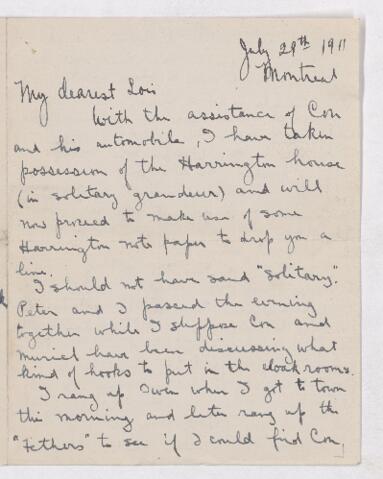 July 29th 1911
Montreal
My dearest Lois
With the assistance of Con
and his automobile, I have taken
possession of the Harrington house
(in solitary grandeur) and will
now proceed to make use of some
Harrington note paper to drop you a
line.
I should not have said "solitary".
Peter and I passed the evening
together while I suppose Con and
Muriel have been discussing what
kind of hooks to put in the cloak rooms.
I rang up when I got to town
this morning and later rang up the
to see if I could find Con,